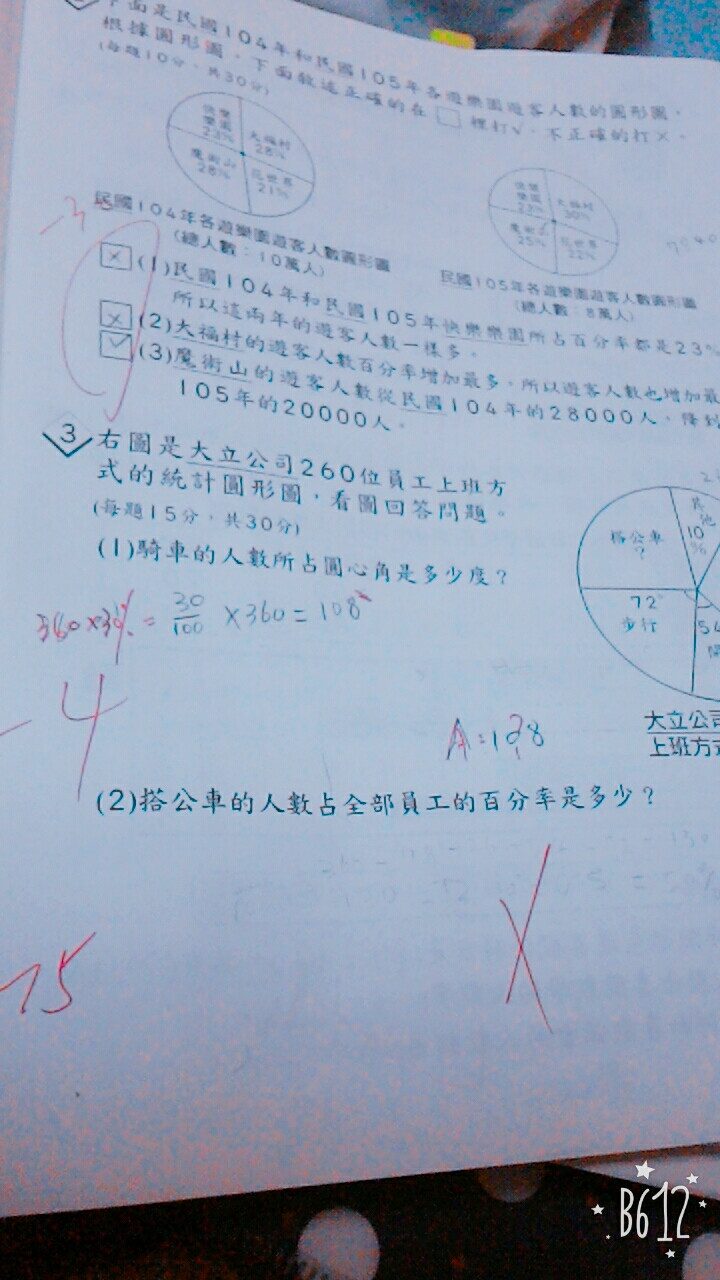 下面是民國104年和民國105年各遊樂園遊客人數的圓形圖,
根據圓形圖,下面敘述正確的在□裡打✓,不正確的打×。
(每題10分,共30分)
快樂樂園 23%
大福村 28%
魔術山 28%
花世界 21%
民國104年各遊樂園遊客人數圓形圖
(總人數:10萬人)
快樂樂園 23%
大福村 30%
魔術山 25%
花世界 22%
民國105年各遊樂園遊客人數圓形圖
(總人數:8萬人)
-3
× (1)民國104年和民國105年快樂樂園所占百分率都是23%
所以這兩年的遊客人數一樣多。
× (2)大福村的遊客人數百分率增加最多,所以遊客人數也增加最
✓ (3)魔術山的遊客人數從民國104年的28000人,降到
105年的20000人。
3 右圖是大立公司260位員工上班方
式的統計圓形圖,看圖回答問題。
(每題15分,共30分)
其他 10%
搭公車 ?
72°
步行
54
大立公司
上班方式
(1)騎車的人數所占圓心角是多少度?
360×30% = 30/100 ×360=108°
-4
A:108
(2)搭公車的人數占全部員工的百分率是多少?
-15
B612